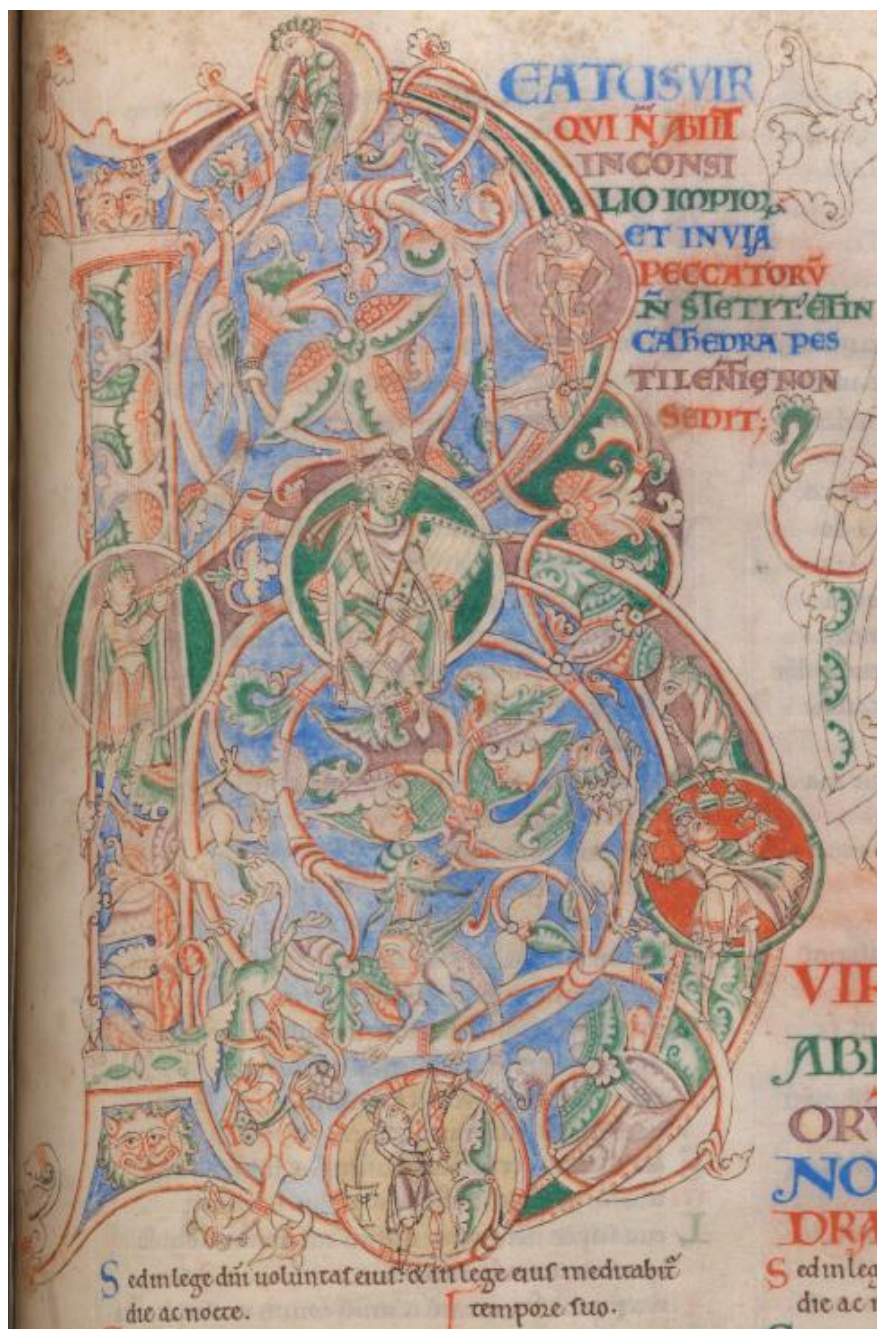 BEATUS VIR
QVI N̄ ABIIT
IN CONSI
LIO IMPIOꝜ
ET IN VIA
PECCATORV̄
N̄ STETIT: ET IN
CATHEDRA PES
TILENTIĘ NON
SEDIT;
Sed in lege dn̄i uoluntaſ eiuſ: & in lege eiuſ meditabit̄
die ac nocte. tempore ſuo.
VIR
ABI
ORV̄
NO
DRA
Sed in leg
die ac n